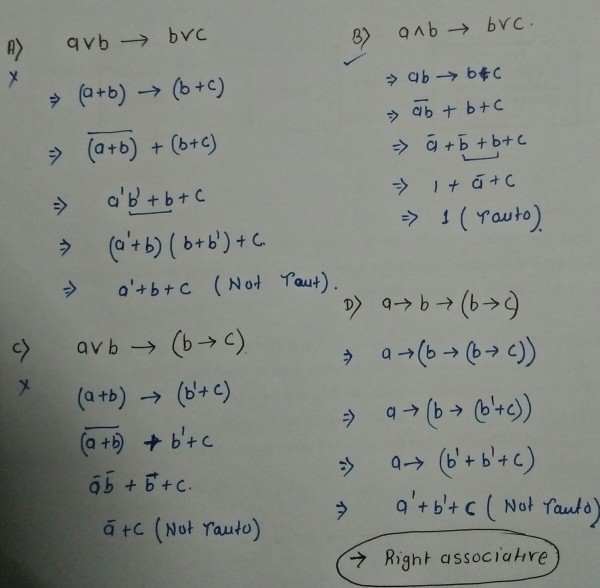 A) a∨b → b∨c
×
⇒ (a+b) → (b+c)
⇒ \overline{(a+b)} + (b+c)
⇒ a'b' + b + c
⇒ (a'+b) (b+b') + c.
⇒ a'+b+c (Not Taut).
B) a∧b → b∨c.
✓
⇒ ab → b+c
⇒ \overline{ab} + b+c
⇒ ā + b̄ + b + c
⇒ 1 + ā + c
⇒ 1 (Tauto).
C) a∨b → (b → c)
×
(a+b) → (b'+c)
\overline{(a+b)} + b'+c
ā b̄ + b̄ + c.
ā + c (Not Tauto)
D) a → b → (b → c)
⇒ a → (b → (b → c))
⇒ a → (b → (b'+c))
⇒ a → (b'+b'+c)
⇒ a'+b'+c (Not Tauto)
→ Right associative